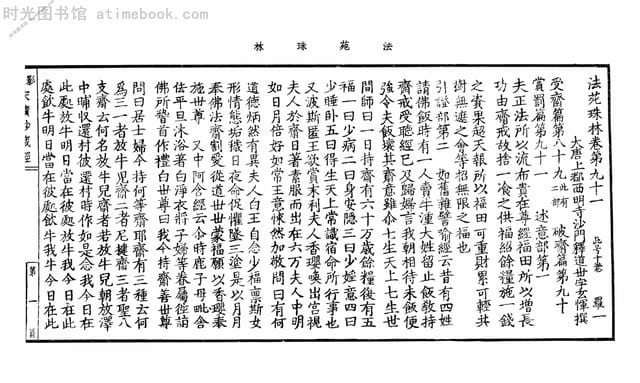 时光图书馆 - atimebook.com
时光图书馆
法苑珠林
法苑珠林卷第九十一 羅一
大唐上都西明寺沙門釋道世字玄惲撰
受齋篇第八十九此有二部 破齋篇第九十
賞罰篇第九十一 述意部第一
夫正法所以流布貴在尊經福田所以增長
功由齋戒故捨一飡之供福紹餘糧施一錢
之資果超天報所以福田可重財累可輕共
樹無遮之會等招無限之福也
引證部第二 如舊雜譬喻經云昔有四姓
請佛飯時有一人賣牛湩大姓留止飯教持
齋戒受聽經已及歸婦言我朝相待未飯便
強令夫飯壞其齋意雖尒七生天上七生世
間師曰一日持齋有六十萬歲餘糧復有五
福一曰少病二曰身安隱三曰少婬意四曰
少睡卧五曰得生天上常識宿命所行事也
又波斯匿王欲賞末利夫人香瓔喚出宮視
夫人於齋日著素服而出在六萬夫人中明
如日月倍好如常王意悚然加敬問曰有何
道德炳然有異夫人白王自念少福稟斯女
形情態垢穢日夜命促懼墜三塗是以月月
奉佛法齋割愛從道世世蒙福願以香瓔奉
施世尊 又中阿含經云尒時鹿子母毗舍
佉平旦沐浴著白淨衣將子婦等眷屬徃詣
佛所稽首作禮白世尊曰我今持齋善世尊
問曰居士婦今持何等齋耶齋有三種云何
爲三一者放牛兒齋二者尼揵齋三者聖八
支齋云何名放牛兒齋者若放牛兒朝放澤
中晡收還村彼還村時作如是念我今日在
此處放牛明日當在彼處放牛我今日在此
處飲牛明日當在彼處飲牛我牛今日在此
影宋磧砂藏經
第一頁